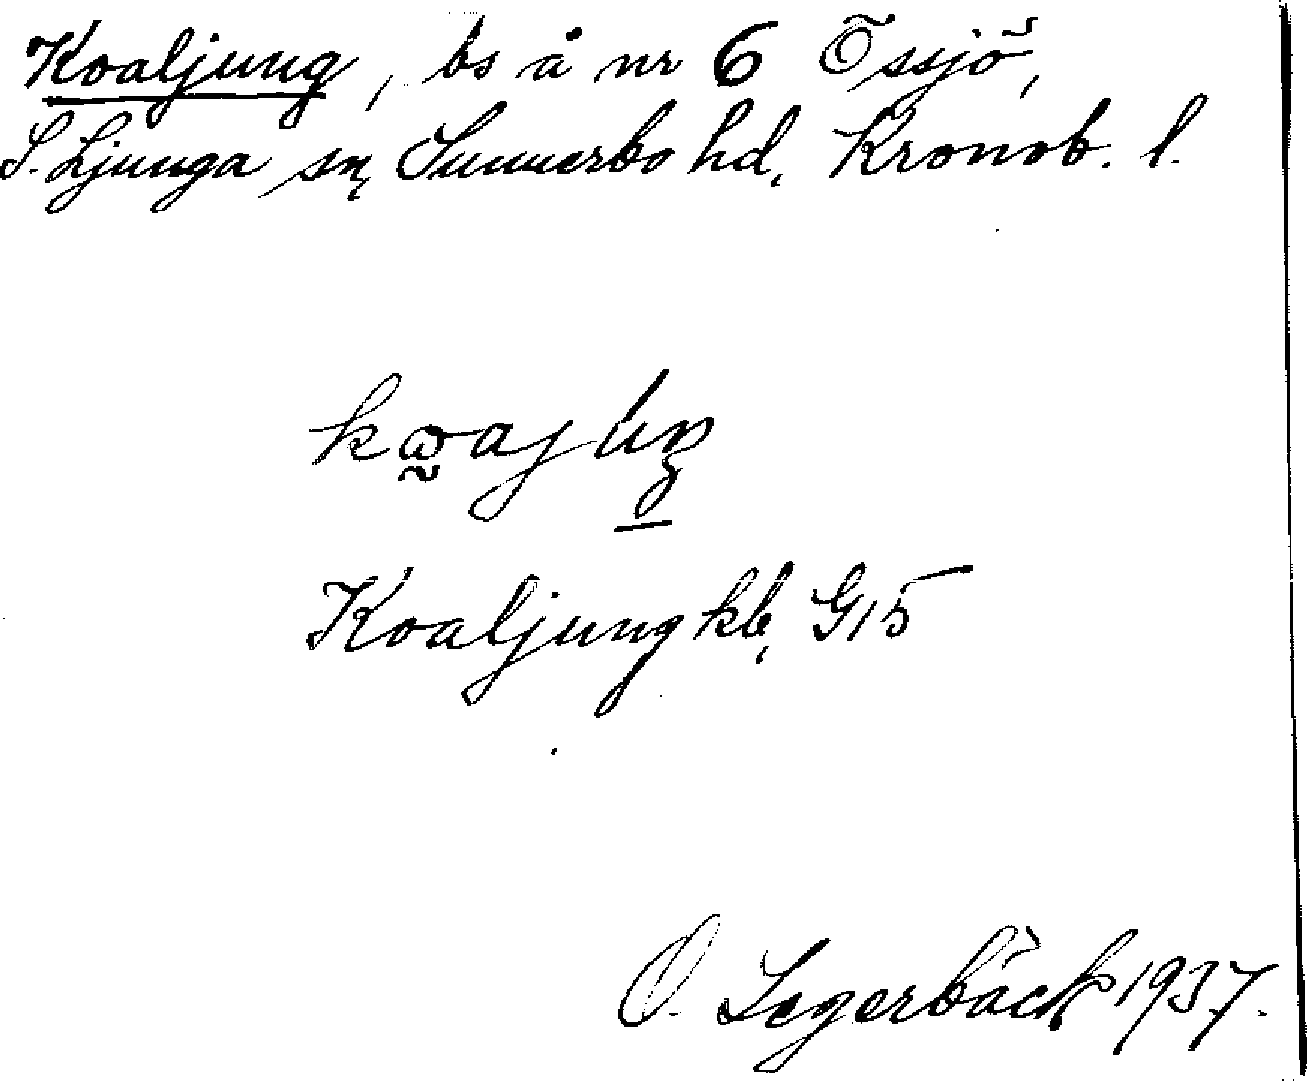 Koaljung, bs å nr 6 Össjö,
S. Ljunga sn, Sunnerbo hd, Kronob. l.
Koaljung kb, G15
O. Legerbäck 1937.